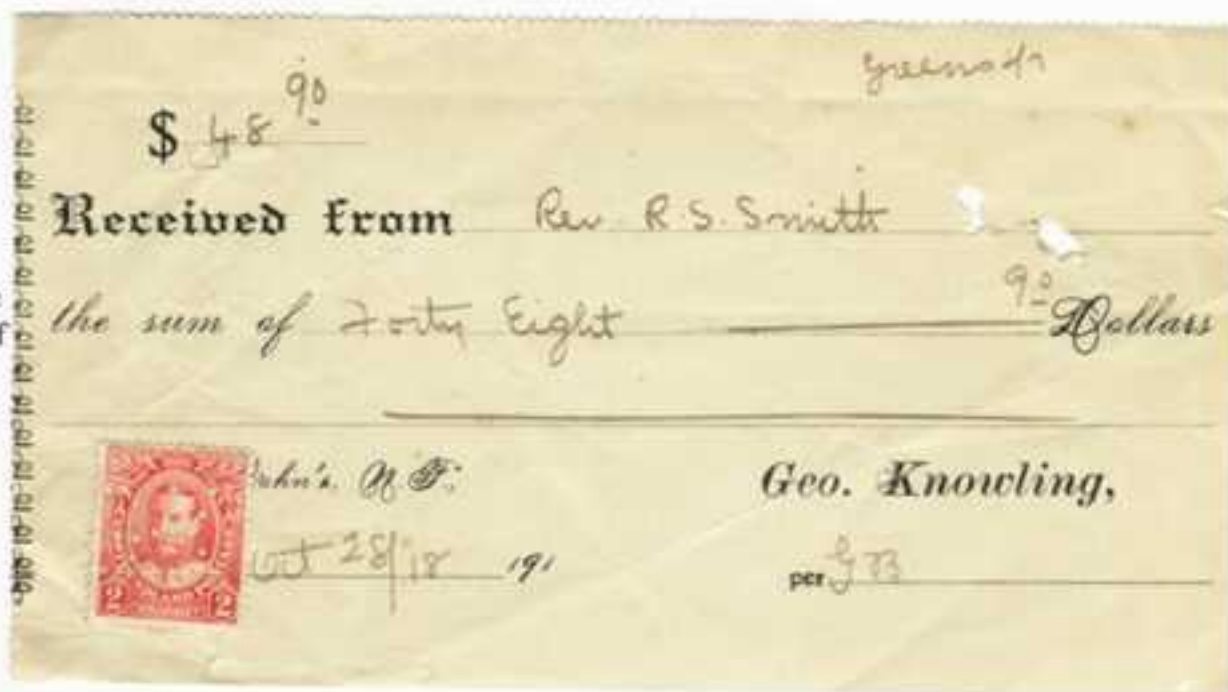 $ 48 90
Received from Rev. R. S. Smith
the sum of Forty Eight 90 Dollars
John's, N. F.,
Geo. Knowling,
Oct 28/18 191
per
2 2